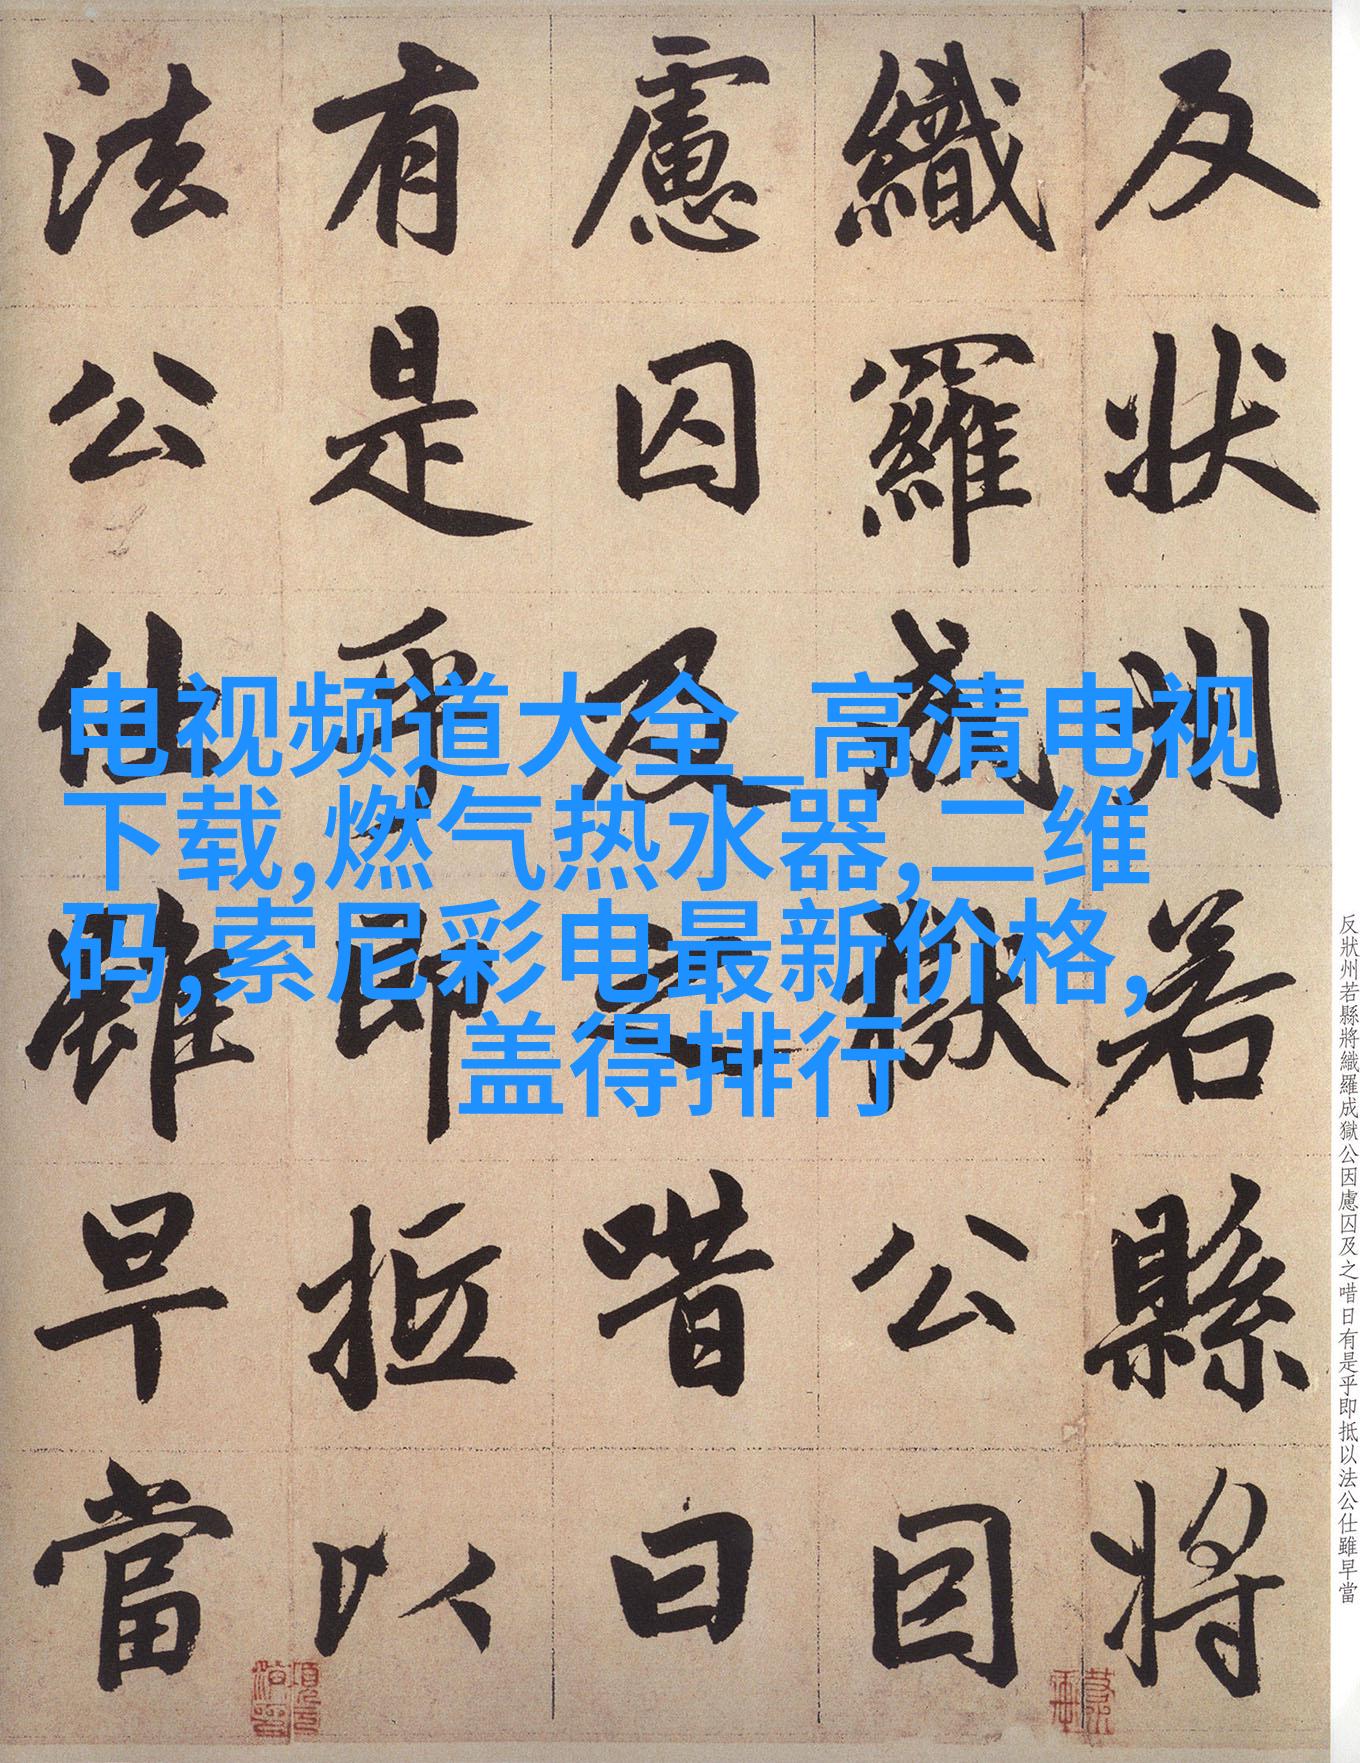 反狀州若縣將
織羅成獄公因
慮囚及之唶曰
有是乎即抵以
法公仕雖早當
电视频道大全_高清电视
下载,燃气热水器,二维
码,索尼彩电最新价格,
盖得排行
反狀州若縣將織羅成獄公因慮囚及之唶日有是乎即抵以法公仕雖早當